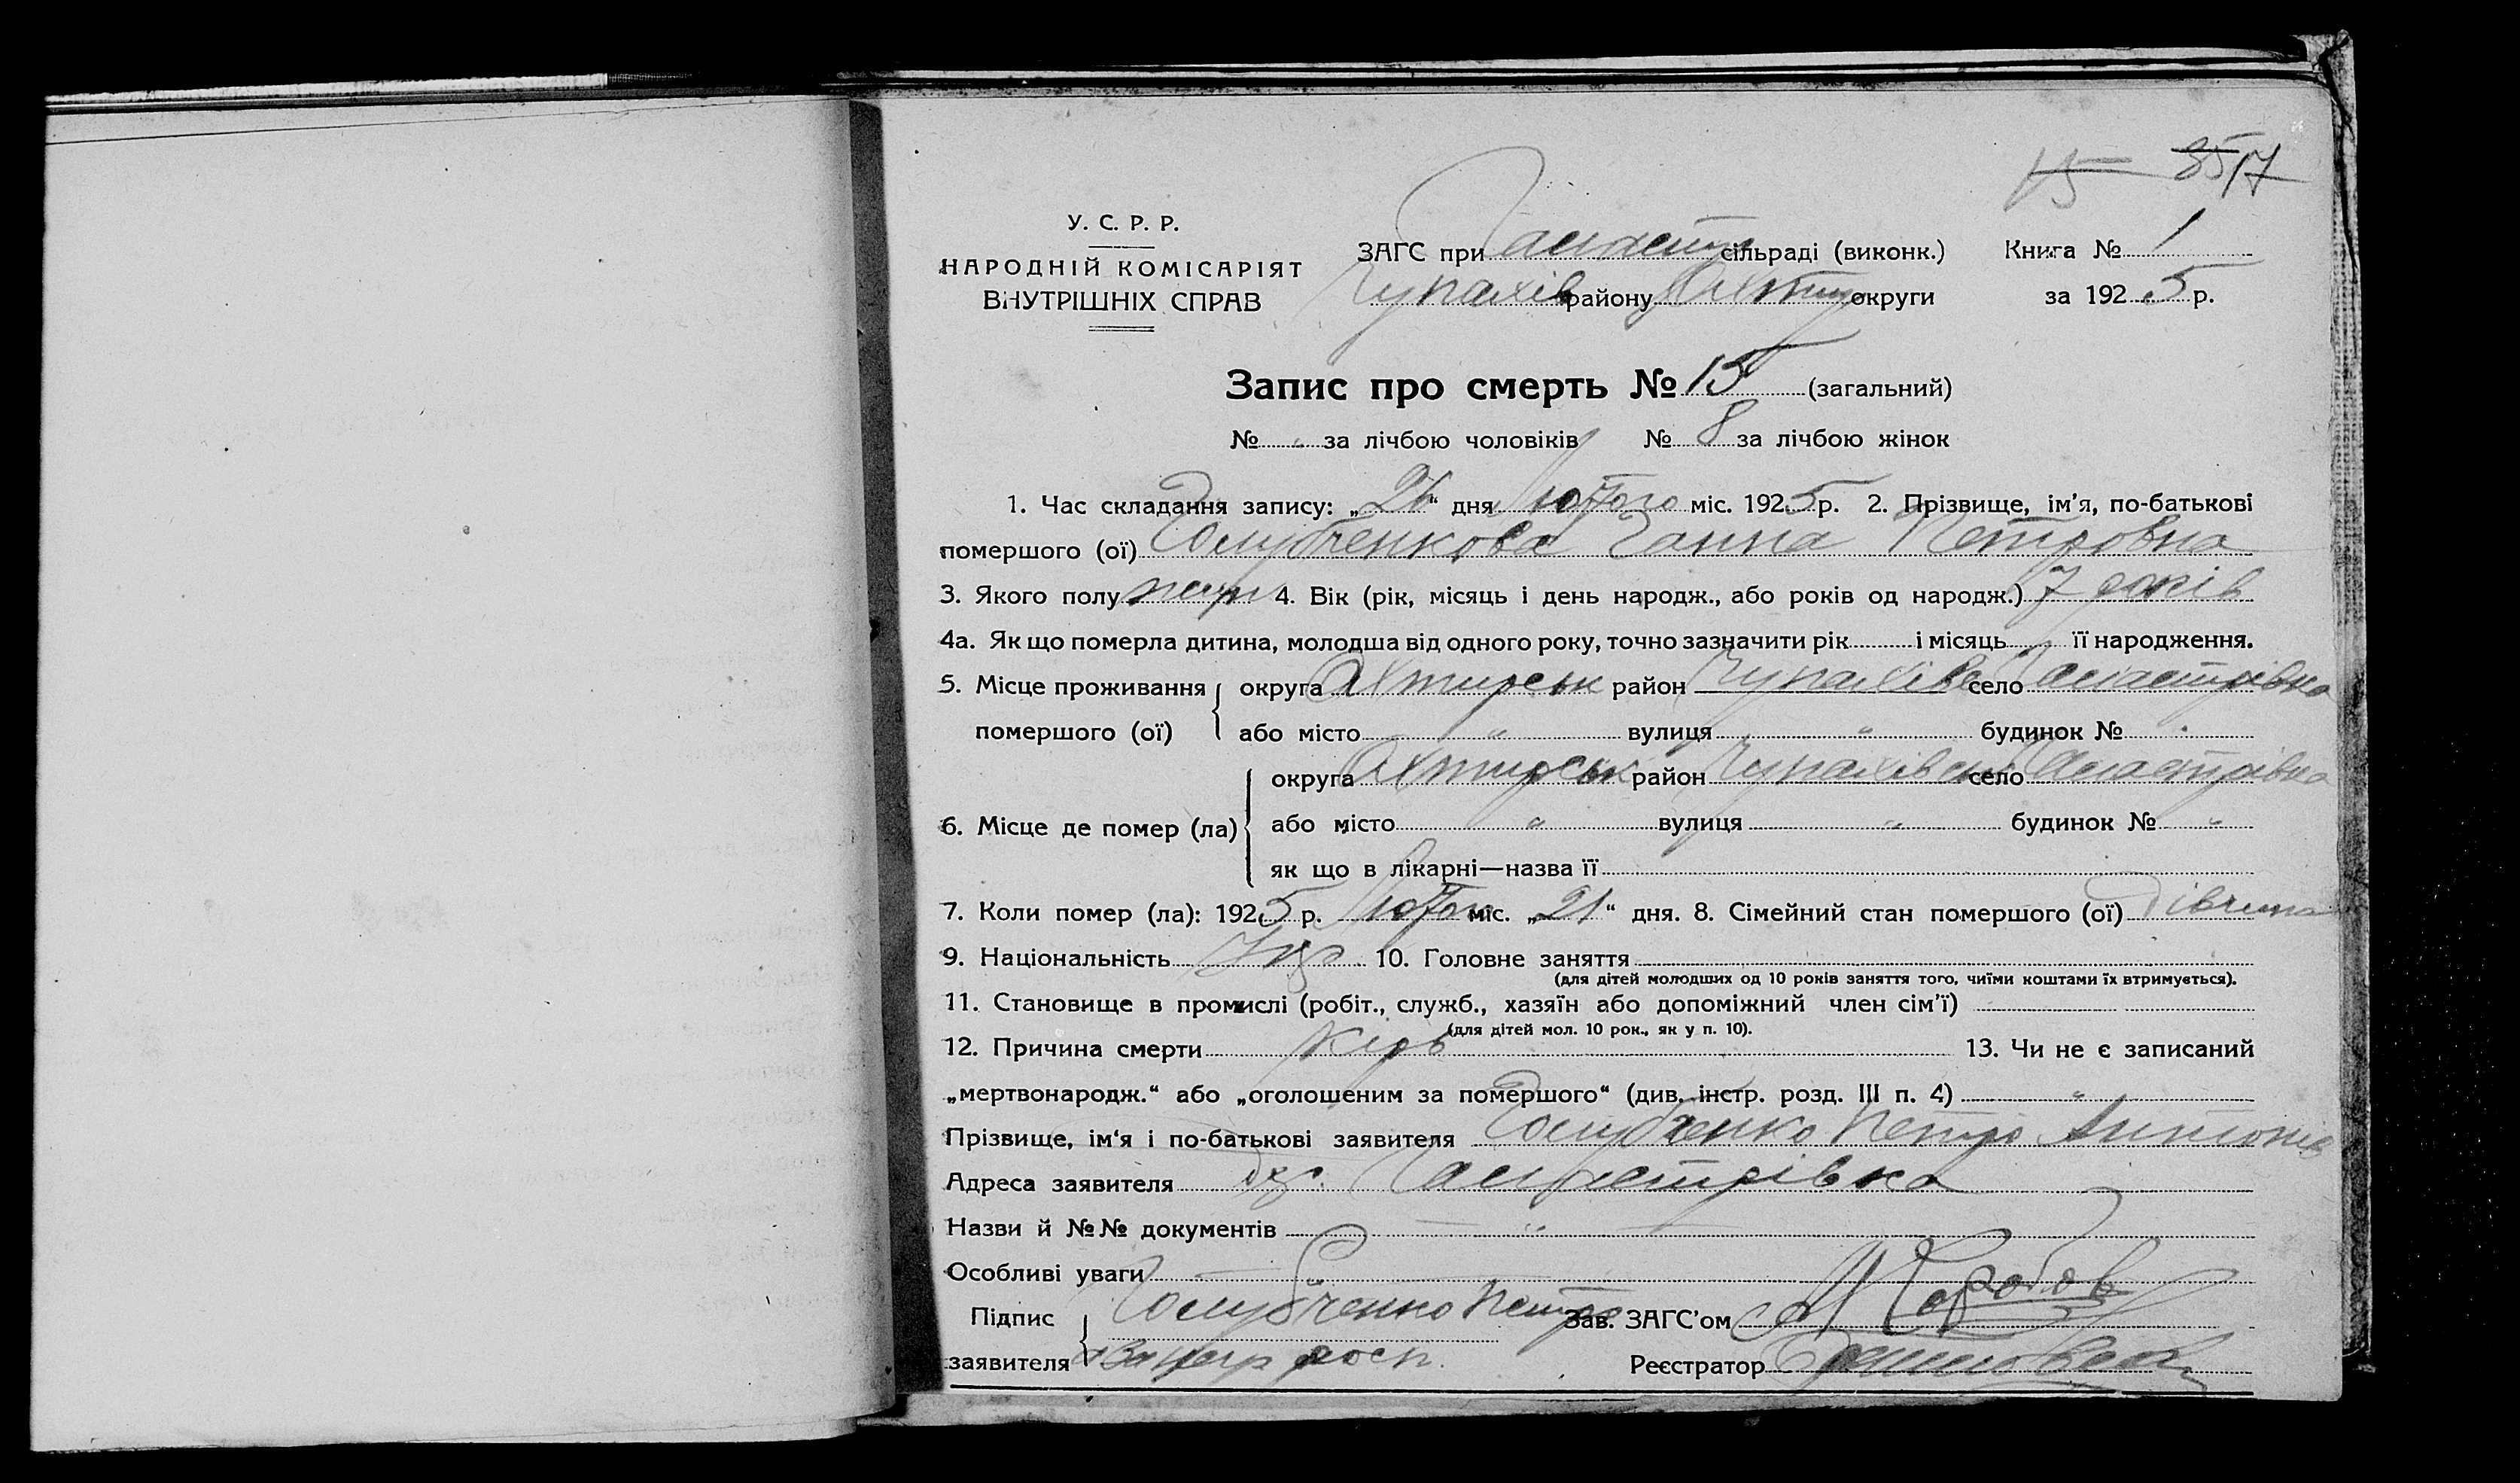 15 3517
У. С. Р. Р.
НАРОДНІЙ КОМІСАРІЯТ
ВНУТРІШНІХ СПРАВ
ЗАГС при сільраді (виконк.) Книга № 1
Чупахів району Охтир округи за 1925 р.
Запис про смерть № 15 (загальний)
№ „ за лічбою чоловіків № 8 за лічбою жінок
1. Час складання запису: „26“ дня Лютого міс. 1925 р. 2. Прізвище, ім'я, по-батькові
помершого (ої) Голубченкова Ганна Петровна
3. Якого полу 4. Вік (рік, місяць і день народж., або років од народж.) 7 років
4а. Як що померла дитина, молодша від одного року, точно зазначити рік і місяць її народження.
5. Місце проживання округа Охтирськ район Чупахівс село
помершого (ої) або місто „ вулиця „ будинок № „
округа Охтирськ район Чупахівськ село
6. Місце де помер (ла) або місто „ вулиця „ будинок № „
як що в лікарні—назва її
7. Коли помер (ла): 1925 р. Лютого міс. „21“ дня. 8. Сімейний стан помершого (ої) Дівчина
9. Національність Укр. 10. Головне заняття
(для дітей молодших од 10 років заняття того, чиїми коштами їх втримується).
11. Становище в промислі (робіт., служб., хазяїн або допоміжний член сім'ї)
(для дітей мол. 10 рок., як у п. 10).
12. Причина смерти Кірь 13. Чи не є записаний
„мертвонародж.“ або „оголошеним за помершого“ (див. інстр. розд. III п. 4) „
Прізвище, ім'я і по-батькові заявителя Голубченко Петро Антонів
Адреса заявителя
Назви й №№ документів „
Особливі уваги
Підпис Голубченко Петро Зав. ЗАГС'ом Коробов
заявителя Реєстратор